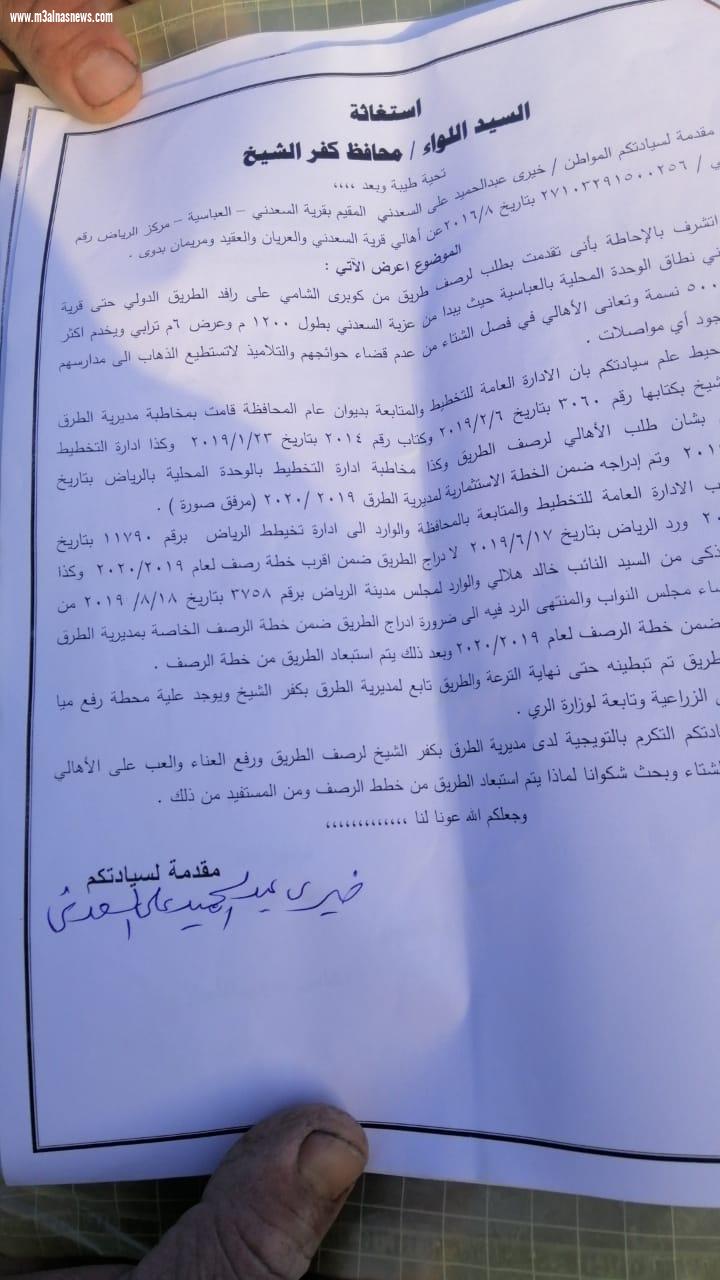 www.m3alnasnews.com
استغاثة
السيد اللواء / محافظ كفر الشيخ
تحية طيبة وبعد ،،،،
مقدمة لسيادتكم المواطن / خيرى عبدالحميد على السعدني المقيم بقرية السعدني – العباسية – مركز الرياض رقم
/ ٢٧١٠٣٢٩١٥٠٠٢٥٦ بتاريخ ٢٠١٦/٨ عن أهالي قرية السعدني والعريان والعقيد ومريمان بدوى .
الموضوع اعرض الآتي :
اتشرف بالإحاطة بأنى تقدمت بطلب لرصف طريق من كوبرى الشامي على رافد الطريق الدولي حتى قرية
نطاق الوحدة المحلية بالعباسية حيث يبدا من عزبة السعدني بطول ١٢٠٠ م وعرض ٦م ترابي ويخدم اكثر
نسمة وتعانى الأهالي في فصل الشتاء من عدم قضاء حوائجهم والتلاميذ لاتستطيع الذهاب الى مدارسهم
أي مواصلات .
علم سيادتكم بان الادارة العامة للتخطيط والمتابعة بديوان عام المحافظة قامت بمخاطبة مديرية الطرق
بكتابها رقم ٣٠٦٠ بتاريخ ٢٠١٩/٢/٦ وكتاب رقم ٢٠١٤ بتاريخ ٢٠١٩/١/٢٣ وكذا ادارة التخطيط
بشان طلب الأهالي لرصف الطريق وكذا مخاطبة ادارة التخطيط بالوحدة المحلية بالرياض بتاريخ
وتم إدراجه ضمن الخطة الاستثمارية لمديرية الطرق ٢٠١٩ /٢٠٢٠ (مرفق صورة ) .
الادارة العامة للتخطيط والمتابعة بالمحافظة والوارد الى ادارة تخيطط الرياض برقم ١١٧٩٠ بتاريخ
ورد الرياض بتاريخ ٢٠١٩/٦/١٧ لادراج الطريق ضمن اقرب خطة رصف لعام ٢٠٢٠/٢٠١٩ وكذا
من السيد النائب خالد هلالي والوارد لمجلس مدينة الرياض برقم ٣٧٥٨ بتاريخ ٨/١٨/ ٢٠١٩ من
مجلس النواب والمنتهى الرد فيه الى ضرورة ادراج الطريق ضمن خطة الرصف الخاصة بمديرية الطرق
ضمن خطة الرصف لعام ٢٠٢٠/٢٠١٩ وبعد ذلك يتم استبعاد الطريق من خطة الرصف .
تم تبطينه حتى نهاية الترعة والطريق تابع لمديرية الطرق بكفر الشيخ ويوجد علية محطة رفع ميا
الزراعية وتابعة لوزارة الري .
التكرم بالتويجية لدى مديرية الطرق بكفر الشيخ لرصف الطريق ورفع العناء والعب على الأهالي
وبحث شكوانا لماذا يتم استبعاد الطريق من خطط الرصف ومن المستفيد من ذلك .
وجعلكم الله عونا لنا ،،،،،،،،،،،،،
مقدمة لسيادتكم
خيرى عبد الحميد على السعدنى